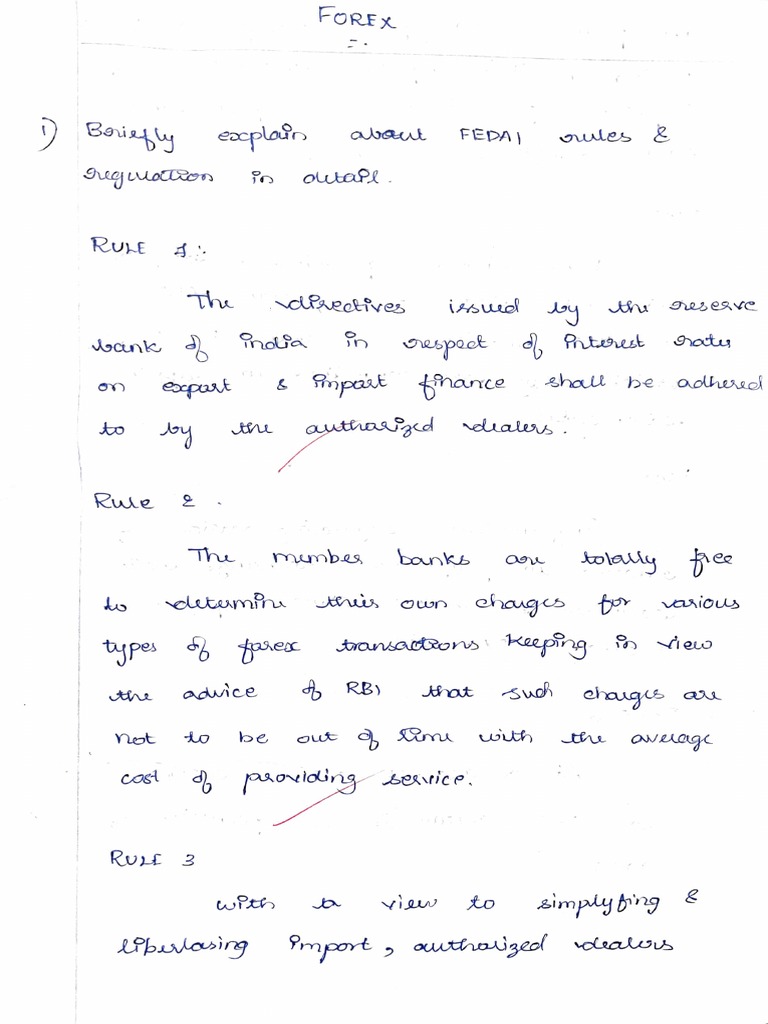 FOREX
1) Briefly explain about FEDAI rules &
regulation in detail.
RULE 1:
The directives issued by the reserve
bank of india in respect of interest rates
on export & import finance shall be adhered
to by the authorized dealers.
Rule 2.
The member banks are totally free
to determine their own charges for various
types of forex transactions keeping in view
the advice of RBI that such charges are
not to be out of time with the average
cost of providing service.
RULE 3
with a view to simplyfing &
liberlasing import, authorized dealers